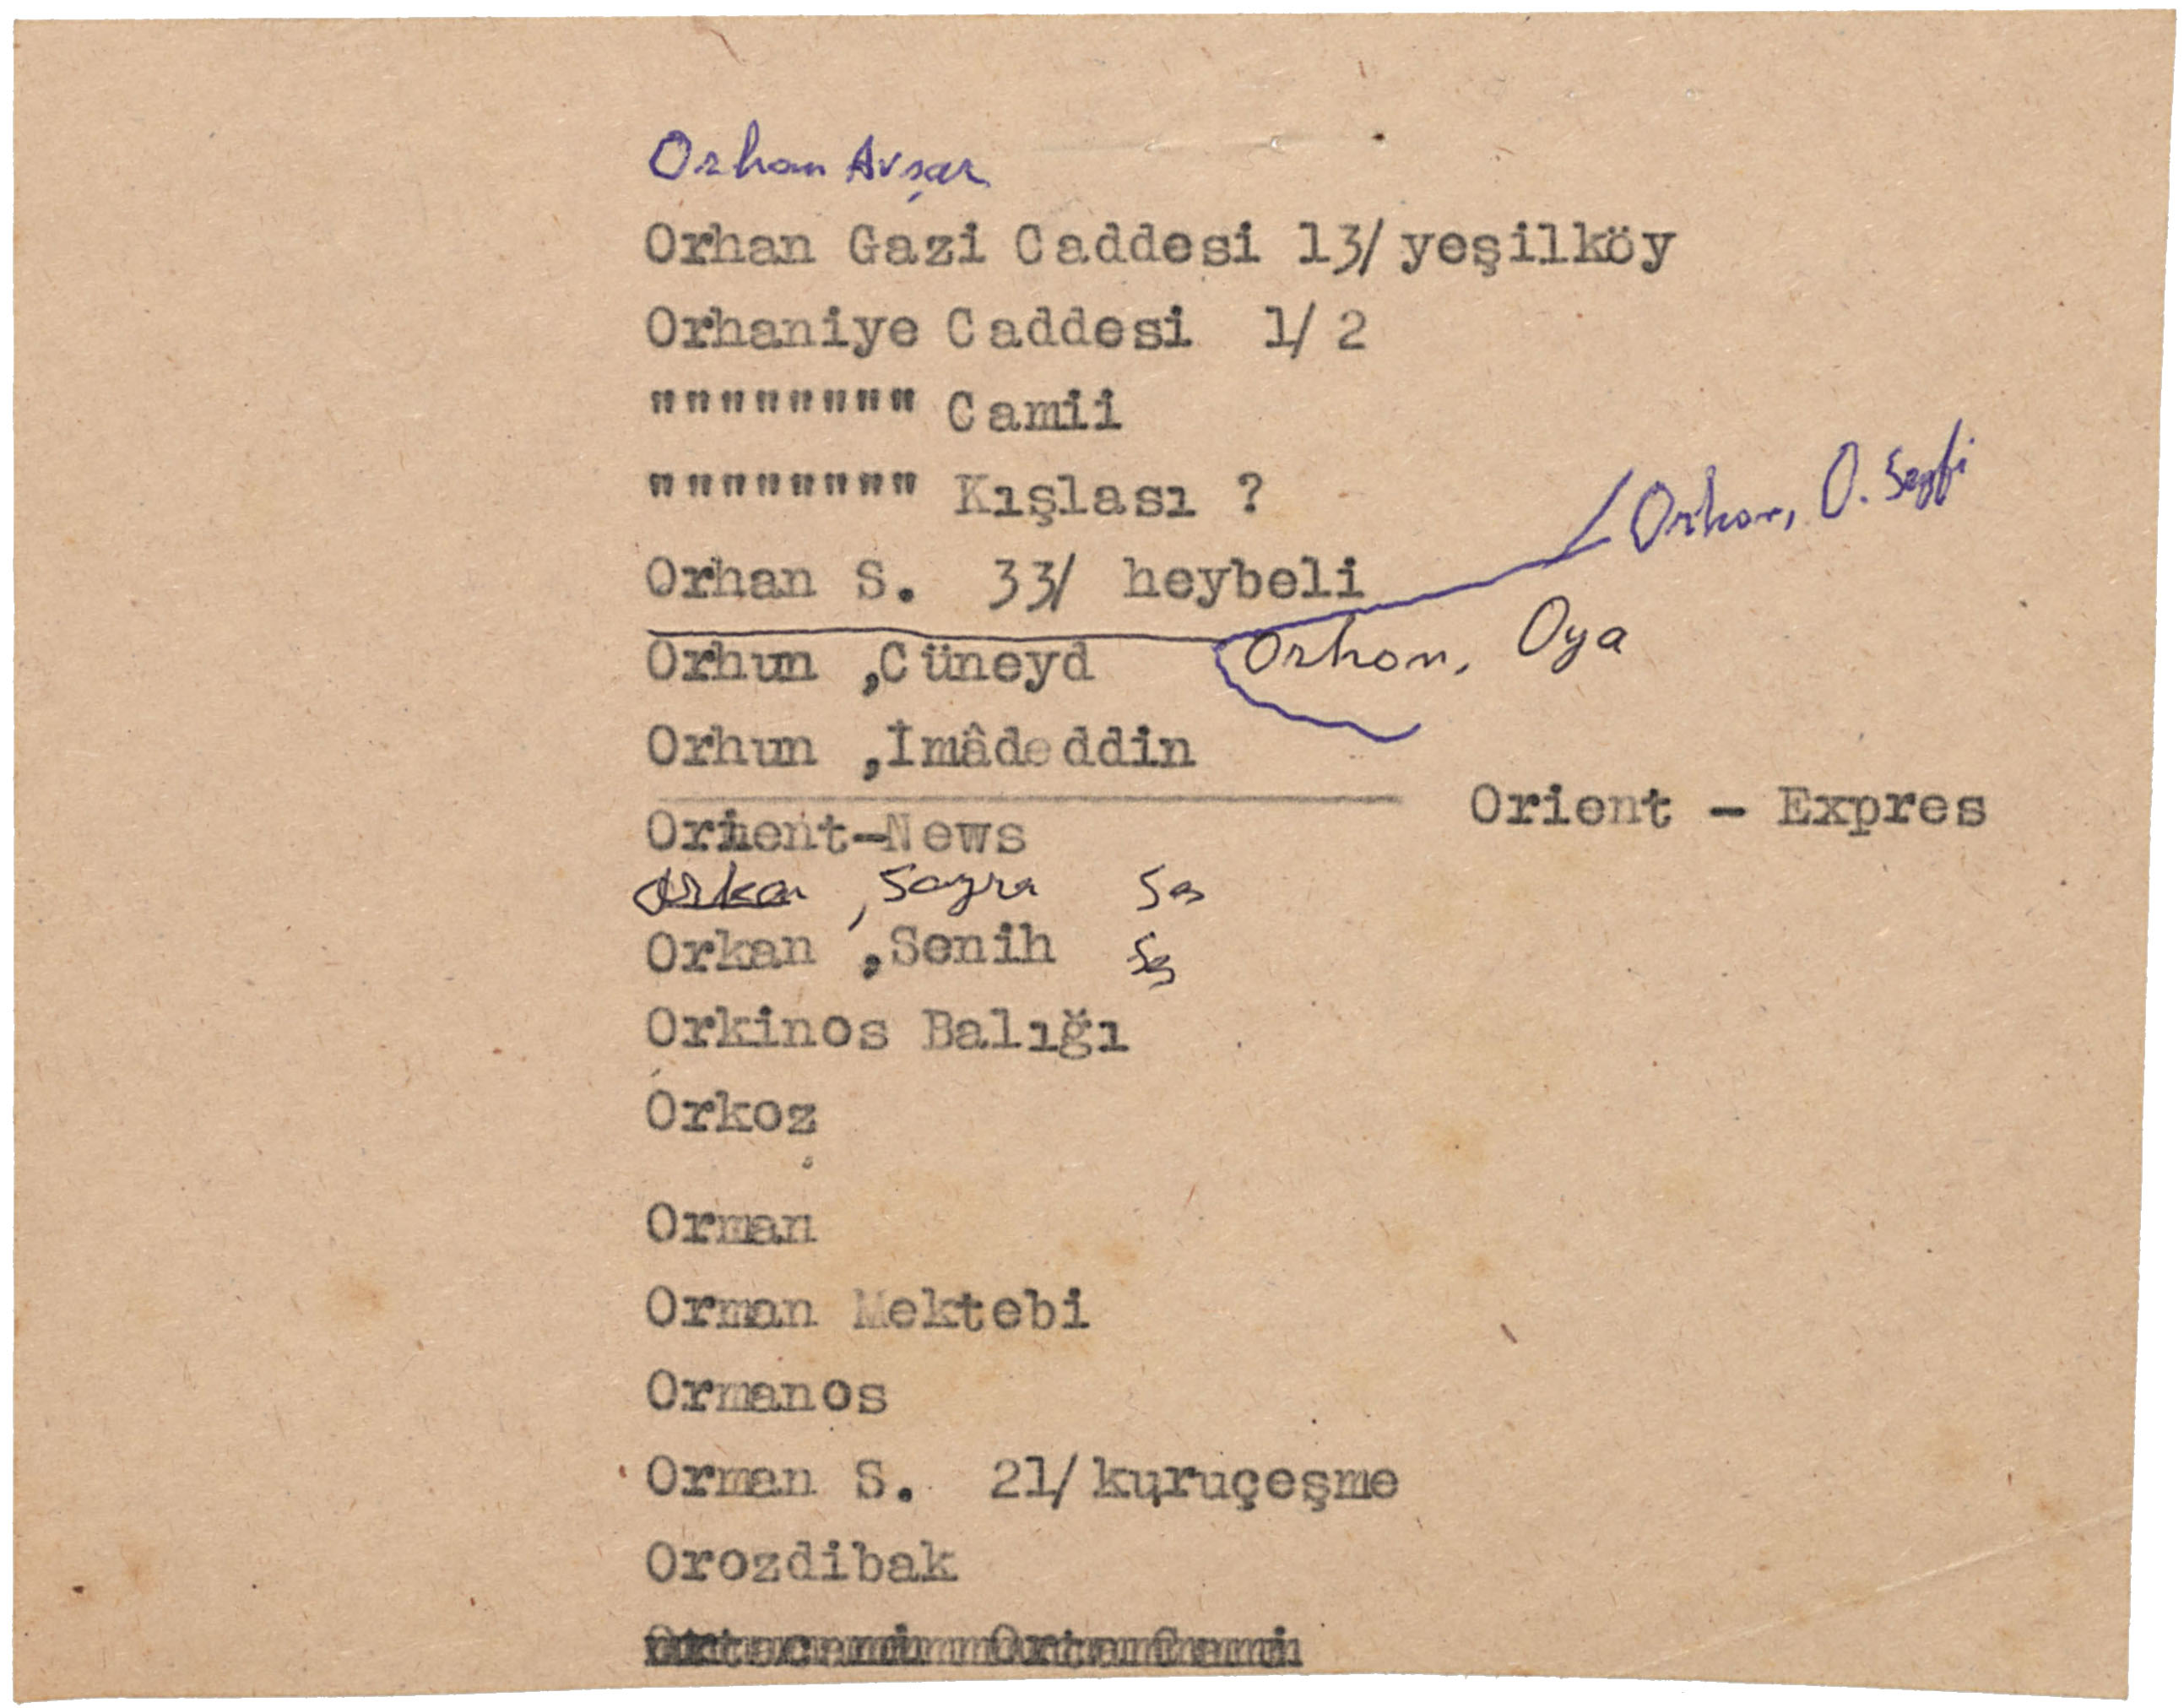 Orhan Avşar
Orhan Gazi Caddesi 13/yeşilköy
Orhaniye Caddesi 1/2
"""""""" Camii
"""""""" Kışlası ?
Orhon, O. Seyfi
Orhan S. 33/ heybeli
Orhon, Oya
Orhun ,Cüneyd
Orhun ,İmâdeddin
Orient - Expres
Orient-News
Orkan ,
Orkan ,Senih
Orkinos Balığı
Orkoz
Orman
Orman Mektebi
Ormanos
Orman S. 21/kuruçeşme
Orozdibak